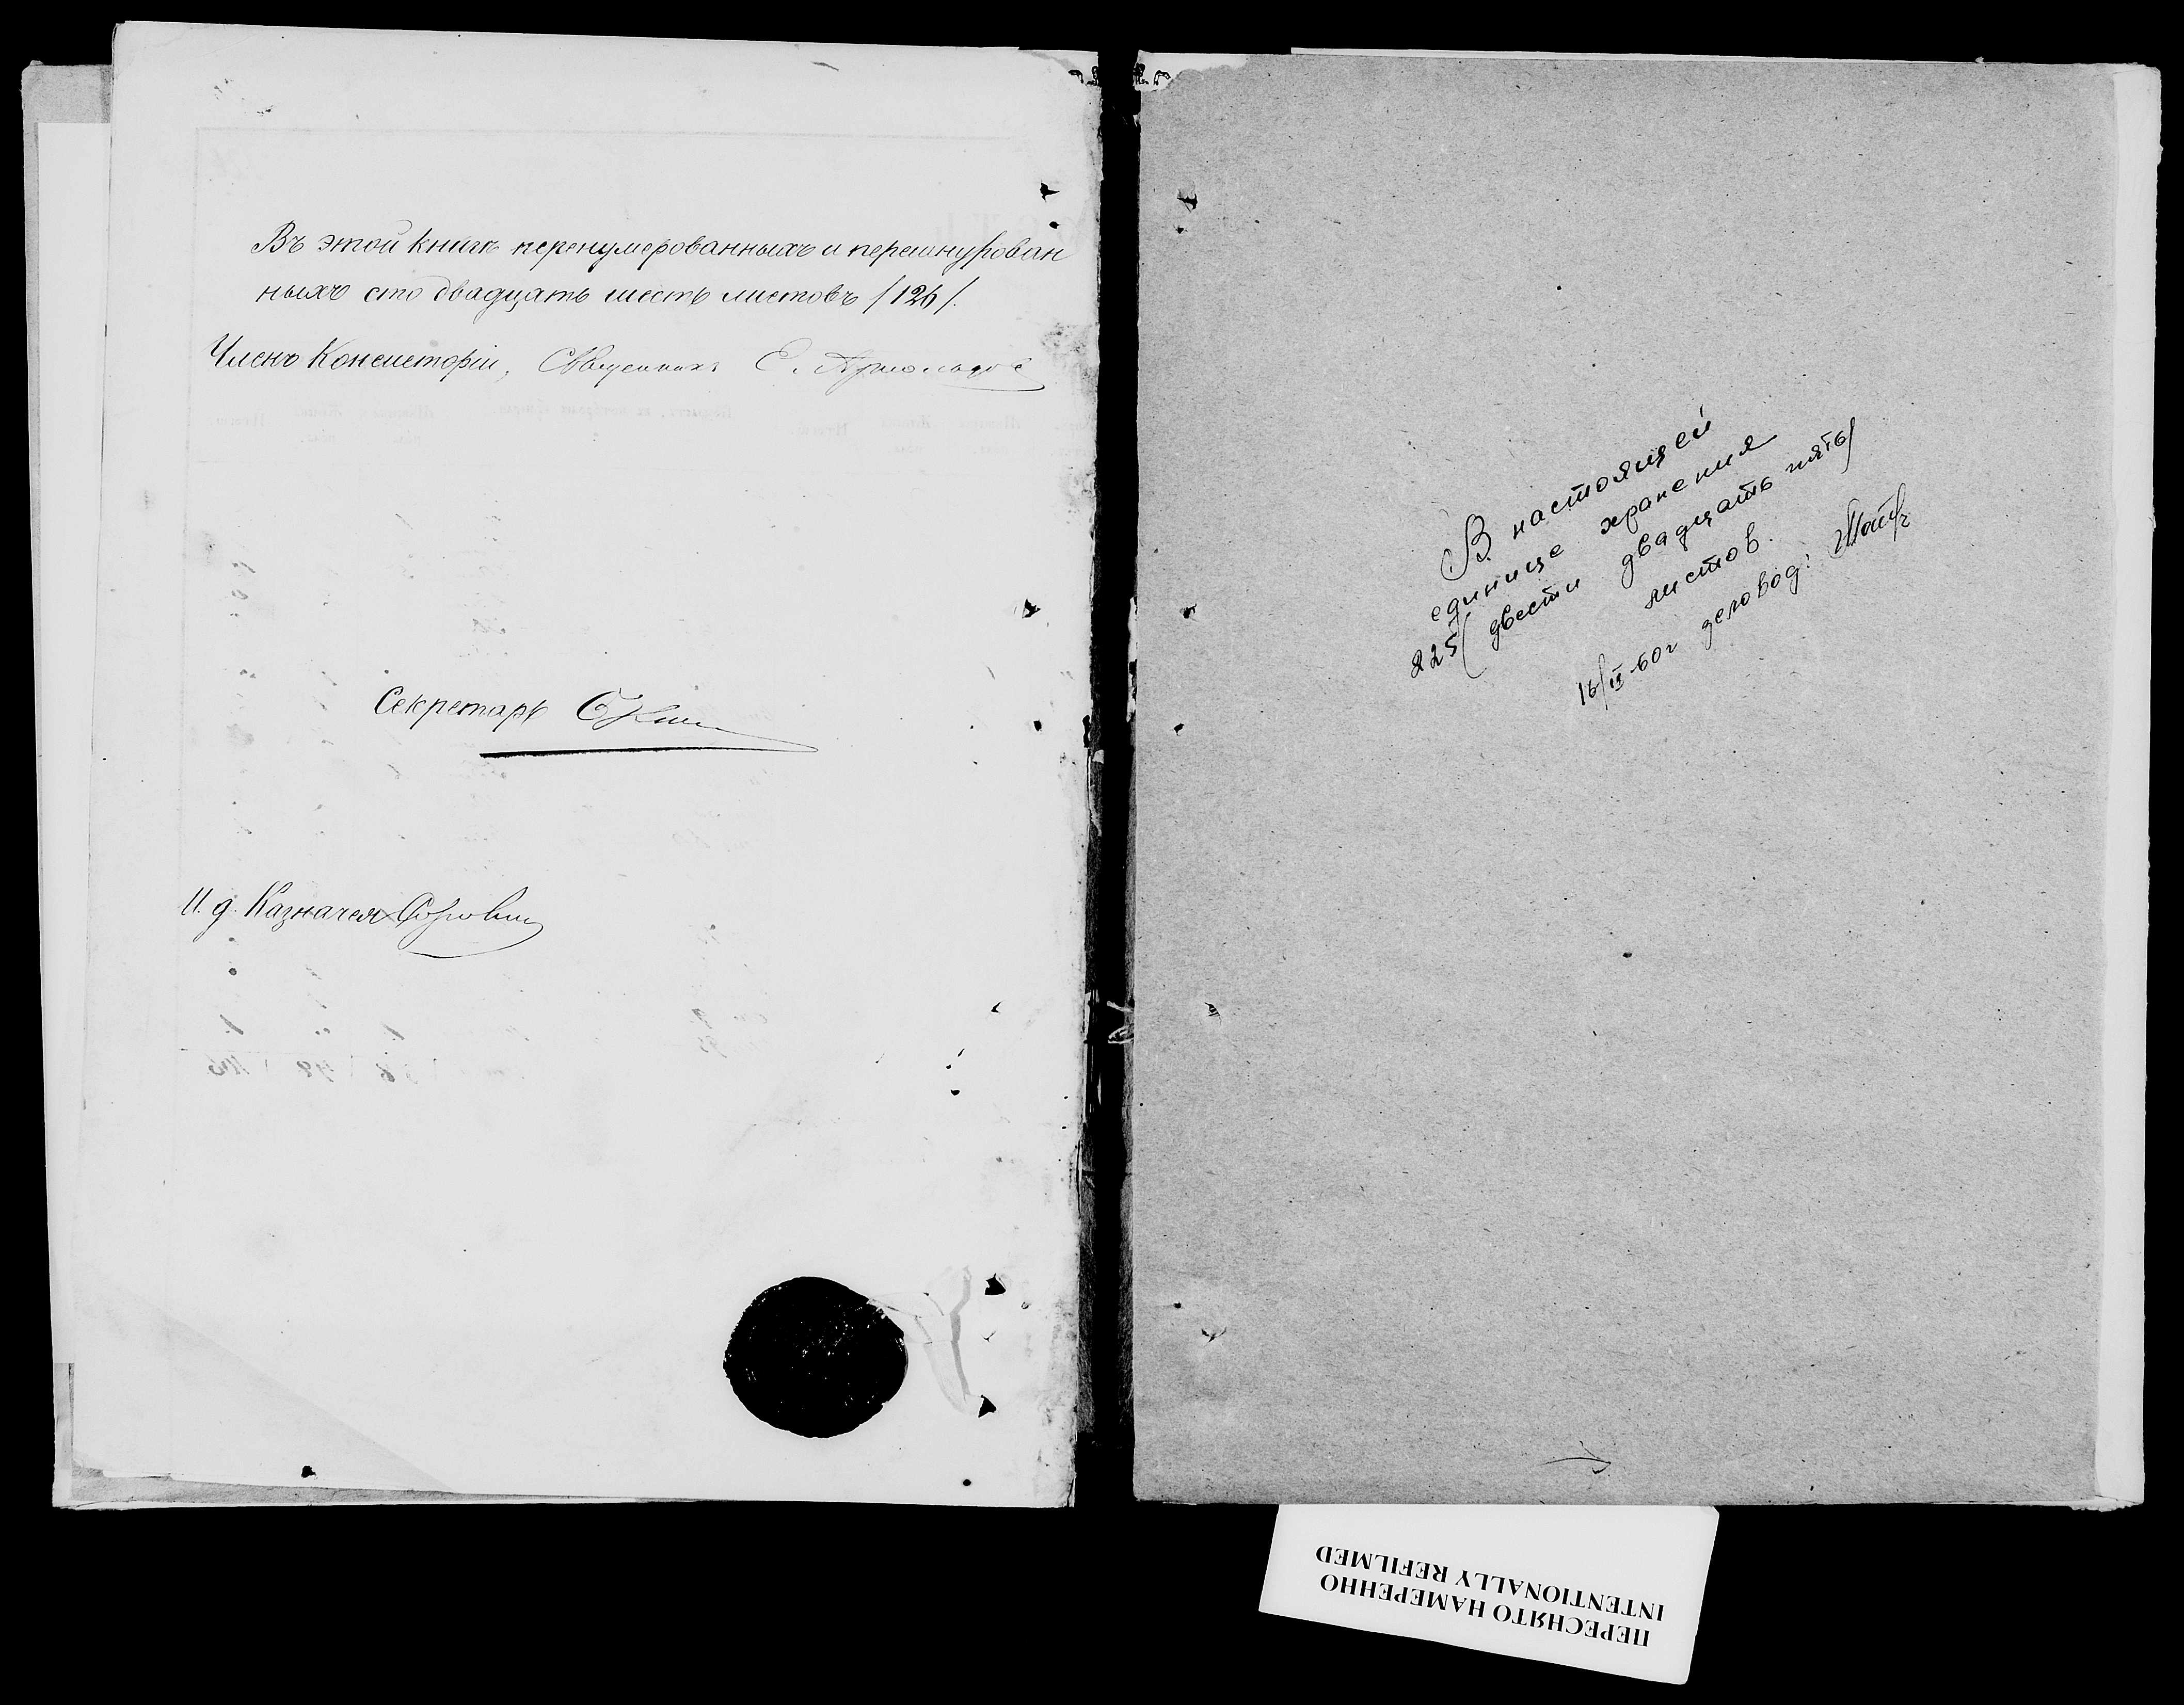 Въ этой книгѣ перенумерованныхъ и перешнурован
ныхъ сто двадцать шесть листовъ /126/.
Членъ Консисторіи, Священникъ Е.
Секретарь
И. д. Казначея
В настоящей
единице хранения
225 (двести двадцать пять)
листов.
16/IX-60г деловод:
ПЕРЕСНЯТО НАМЕРЕННО
INTENTIONALLY REFILMED